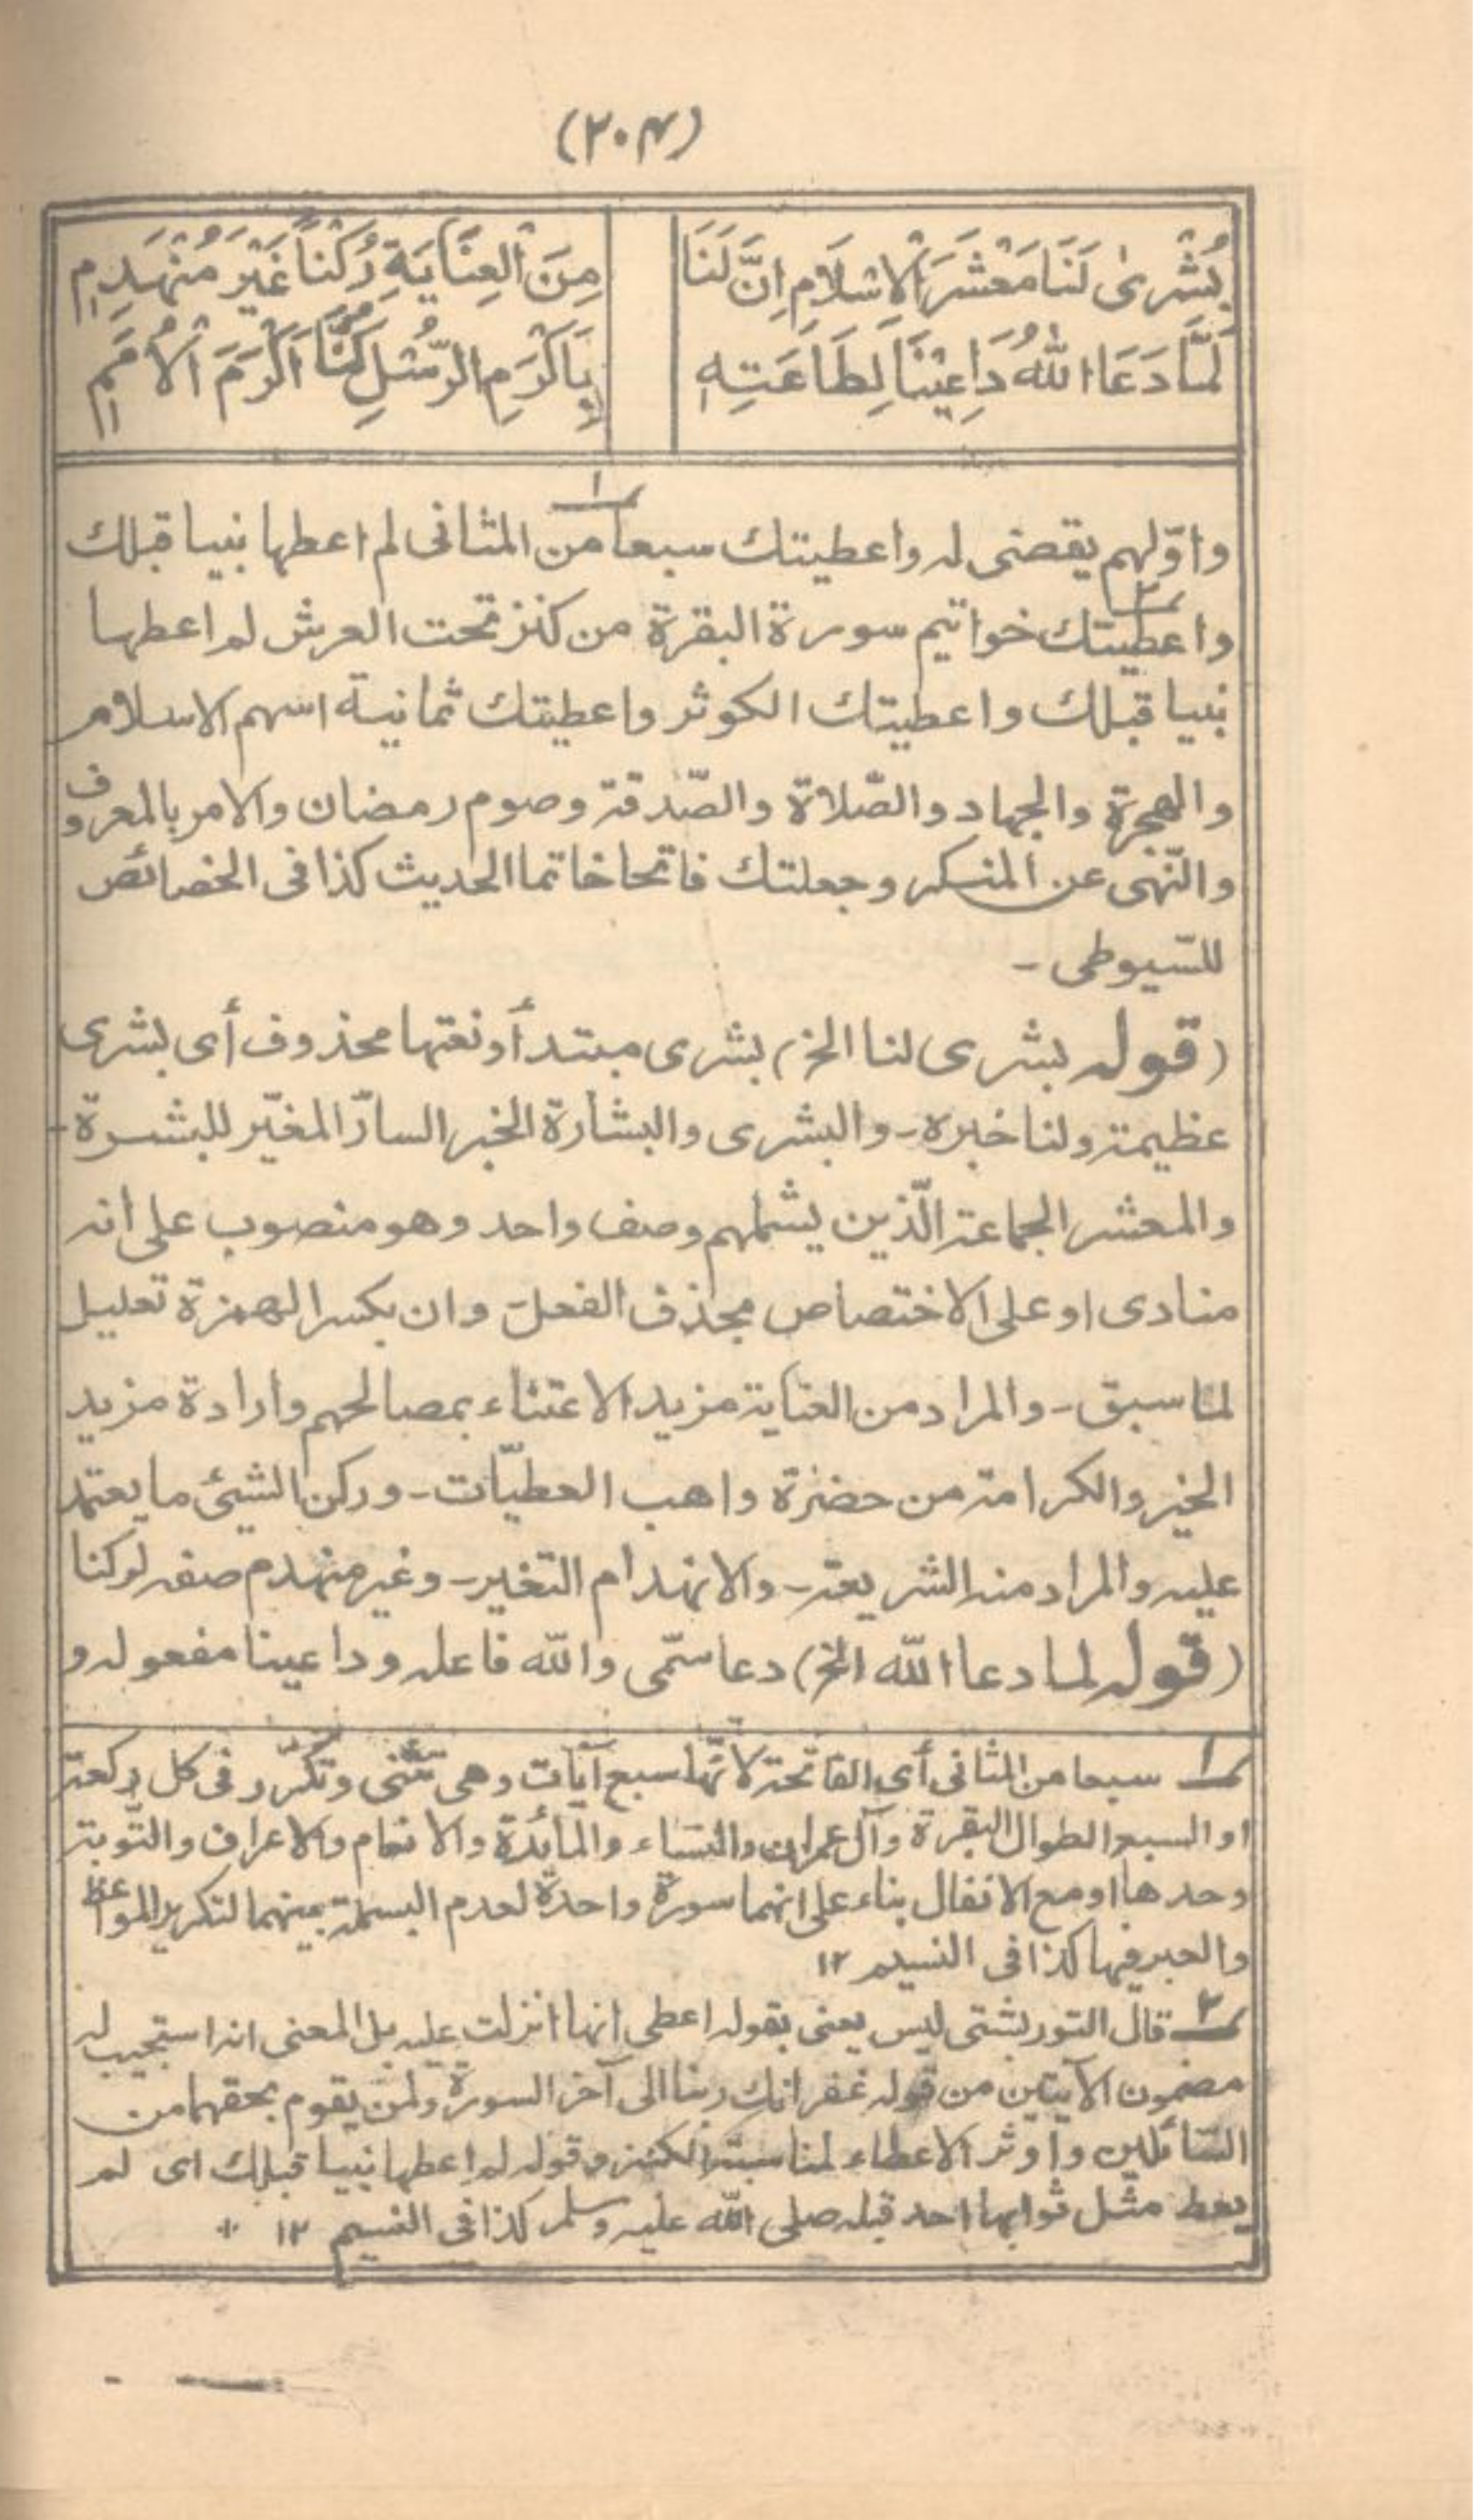 (۲۰۴)
بُشْرىٰ لَنَا مَعْشَرَ الْاِسْلَامِ اِنَّ لَنَا مِنَ الْعِنَايَةِ رُكْنًا غَيْرَ مُنْهَدِمٖ
لَمَّا دَعَا اللّٰهُ دَاعِيْنَا لِطَاعَتِهٖ بِاَكْرَمِ الرُّسُلِ كُنَّا اَكْرَمَ الْاُمَمٖ
واوّلهم يقضى له واعطيتك سبعا ۱ من المثانى لم اعطها نبيا قبلك
واعطيتك ۲ خواتيم سورة البقرة من كنز تحت العرش لم اعطها
نبيا قبلك واعطيتك الكوثر واعطيتك ثمانية اسهم الاسلام
والهجرة والجهاد والصّلاة والصّدقة وصوم رمضان والامر بالمعروف
والنّهى عن المنكر وجعلتك فاتحا خاتما الحديث كذا فى الخصائص
للسّيوطى -
(قوله بشرى لنا الخ) بشرى مبتدأ ونعتها محذوف أى بشرى
عظيمة ولنا خبره - والبشرى والبشارة الخبر السارّ المغيّر للبشرة -
والمعشر الجماعة الّذين يشملهم وصف واحد وهو منصوب على انه
منادى او على الاختصاص بحذف الفعل وان بكسر الهمزة تعليل
لما سبق - والمراد من العناية مزيد الاعتناء بمصالحهم وارادة مزيد
الخير والكرامة من حضرة واهب العطيّات - وركن الشيئ ما يعتمد
عليه والمراد منه الشريعة - والانهدام التغير - وغير منهدم صفه لركنا
(قوله لما دعا اللّه الخ) دعا سمّى واللّه فاعله وداعينا مفعوله و
۱ سبعا من المثانى أى الفاتحة لانّها سبع آيات وهى تثنى وتكرّر فى كل ركعة
او السبع الطوال البقرة وآل عمران والنساء والمائدة والانعام والاعراف والتّوبة
وحدها او مع الانفال بناء على انهما سورة واحدة لعدم البسملة بينهما لتكرير المواعظ
والعبر فيها كذا فى النسيم ۱۲
۲ قال التوربشتى ليس يعنى بقوله اعطى انها انزلت عليه بل المعنى انه استجيب له
مضمون الآيتين من قوله غفرانك ربنا الى آخر السورة ولمن يقوم بحقهما من
السّائلين واوثر الاعطاء لمناسبة الكنز وقوله لم اعطها نبيا قبلك اى لم
يعط مثل ثوابها احد قبله صلى اللّه عليه وسلم كذا فى النسيم ۱۲